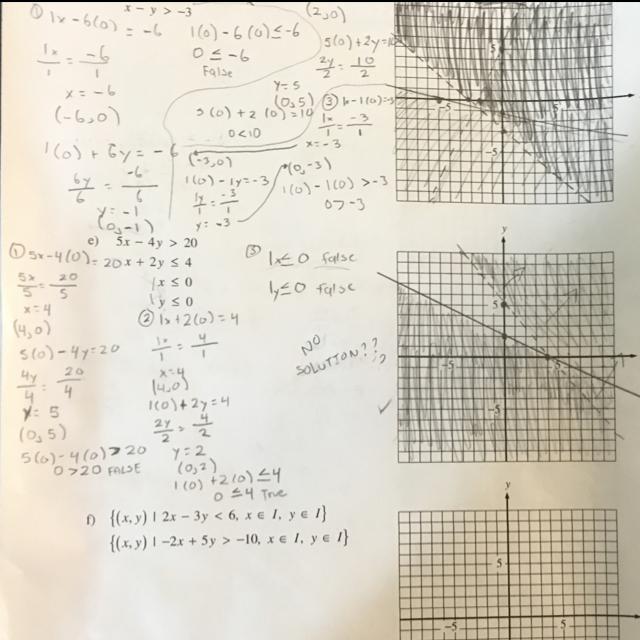 x − y > −3
① 1x-6(0) = -6
1x/1 = -6/1
x = -6
(-6,0)
1(0) + 6y = -6
6y/6 = -6/6
y = -1
(0,-1)
1(0) - 6(0) ≤ -6
0 ≤ -6
False
(2,0)
5(0)+2y=10
2y/2 = 10/2
y = 5
(0,5)
5(0) + 2(0) = 10
0<10
③ 1x-1(0)=-3
1x/1 = -3/1
x = -3
(-3,0)
1(0) - 1y = -3
1y/1 = -3/1
y = -3
(0,-3)
1(0) - 1(0) > -3
0 > -3
e) 5x − 4y > 20
x + 2y ≤ 4
x ≤ 0
y ≤ 0
① 5x-4(0) = 20
5x/5 = 20/5
x = 4
(4,0)
5(0) - 4y = 20
4y/4 = 20/4
y = 5
(0,5)
5(0) - 4(0) > 20
0 > 20 FALSE
② 1x + 2(0) = 4
1x/1 = 4/1
x = 4
(4,0)
1(0) + 2y = 4
2y/2 = 4/2
y = 2
(0,2)
1(0) + 2(0) ≤ 4
0 ≤ 4 True
③ 1x ≤ 0 false
1y ≤ 0 false
NO
SOLUTION???
f) {(x, y) | 2x − 3y < 6, x ∈ I, y ∈ I}
{(x, y) | −2x + 5y > −10, x ∈ I, y ∈ I}
5
−5
5
−5
y
5
−5
−5
y
5
−5
5